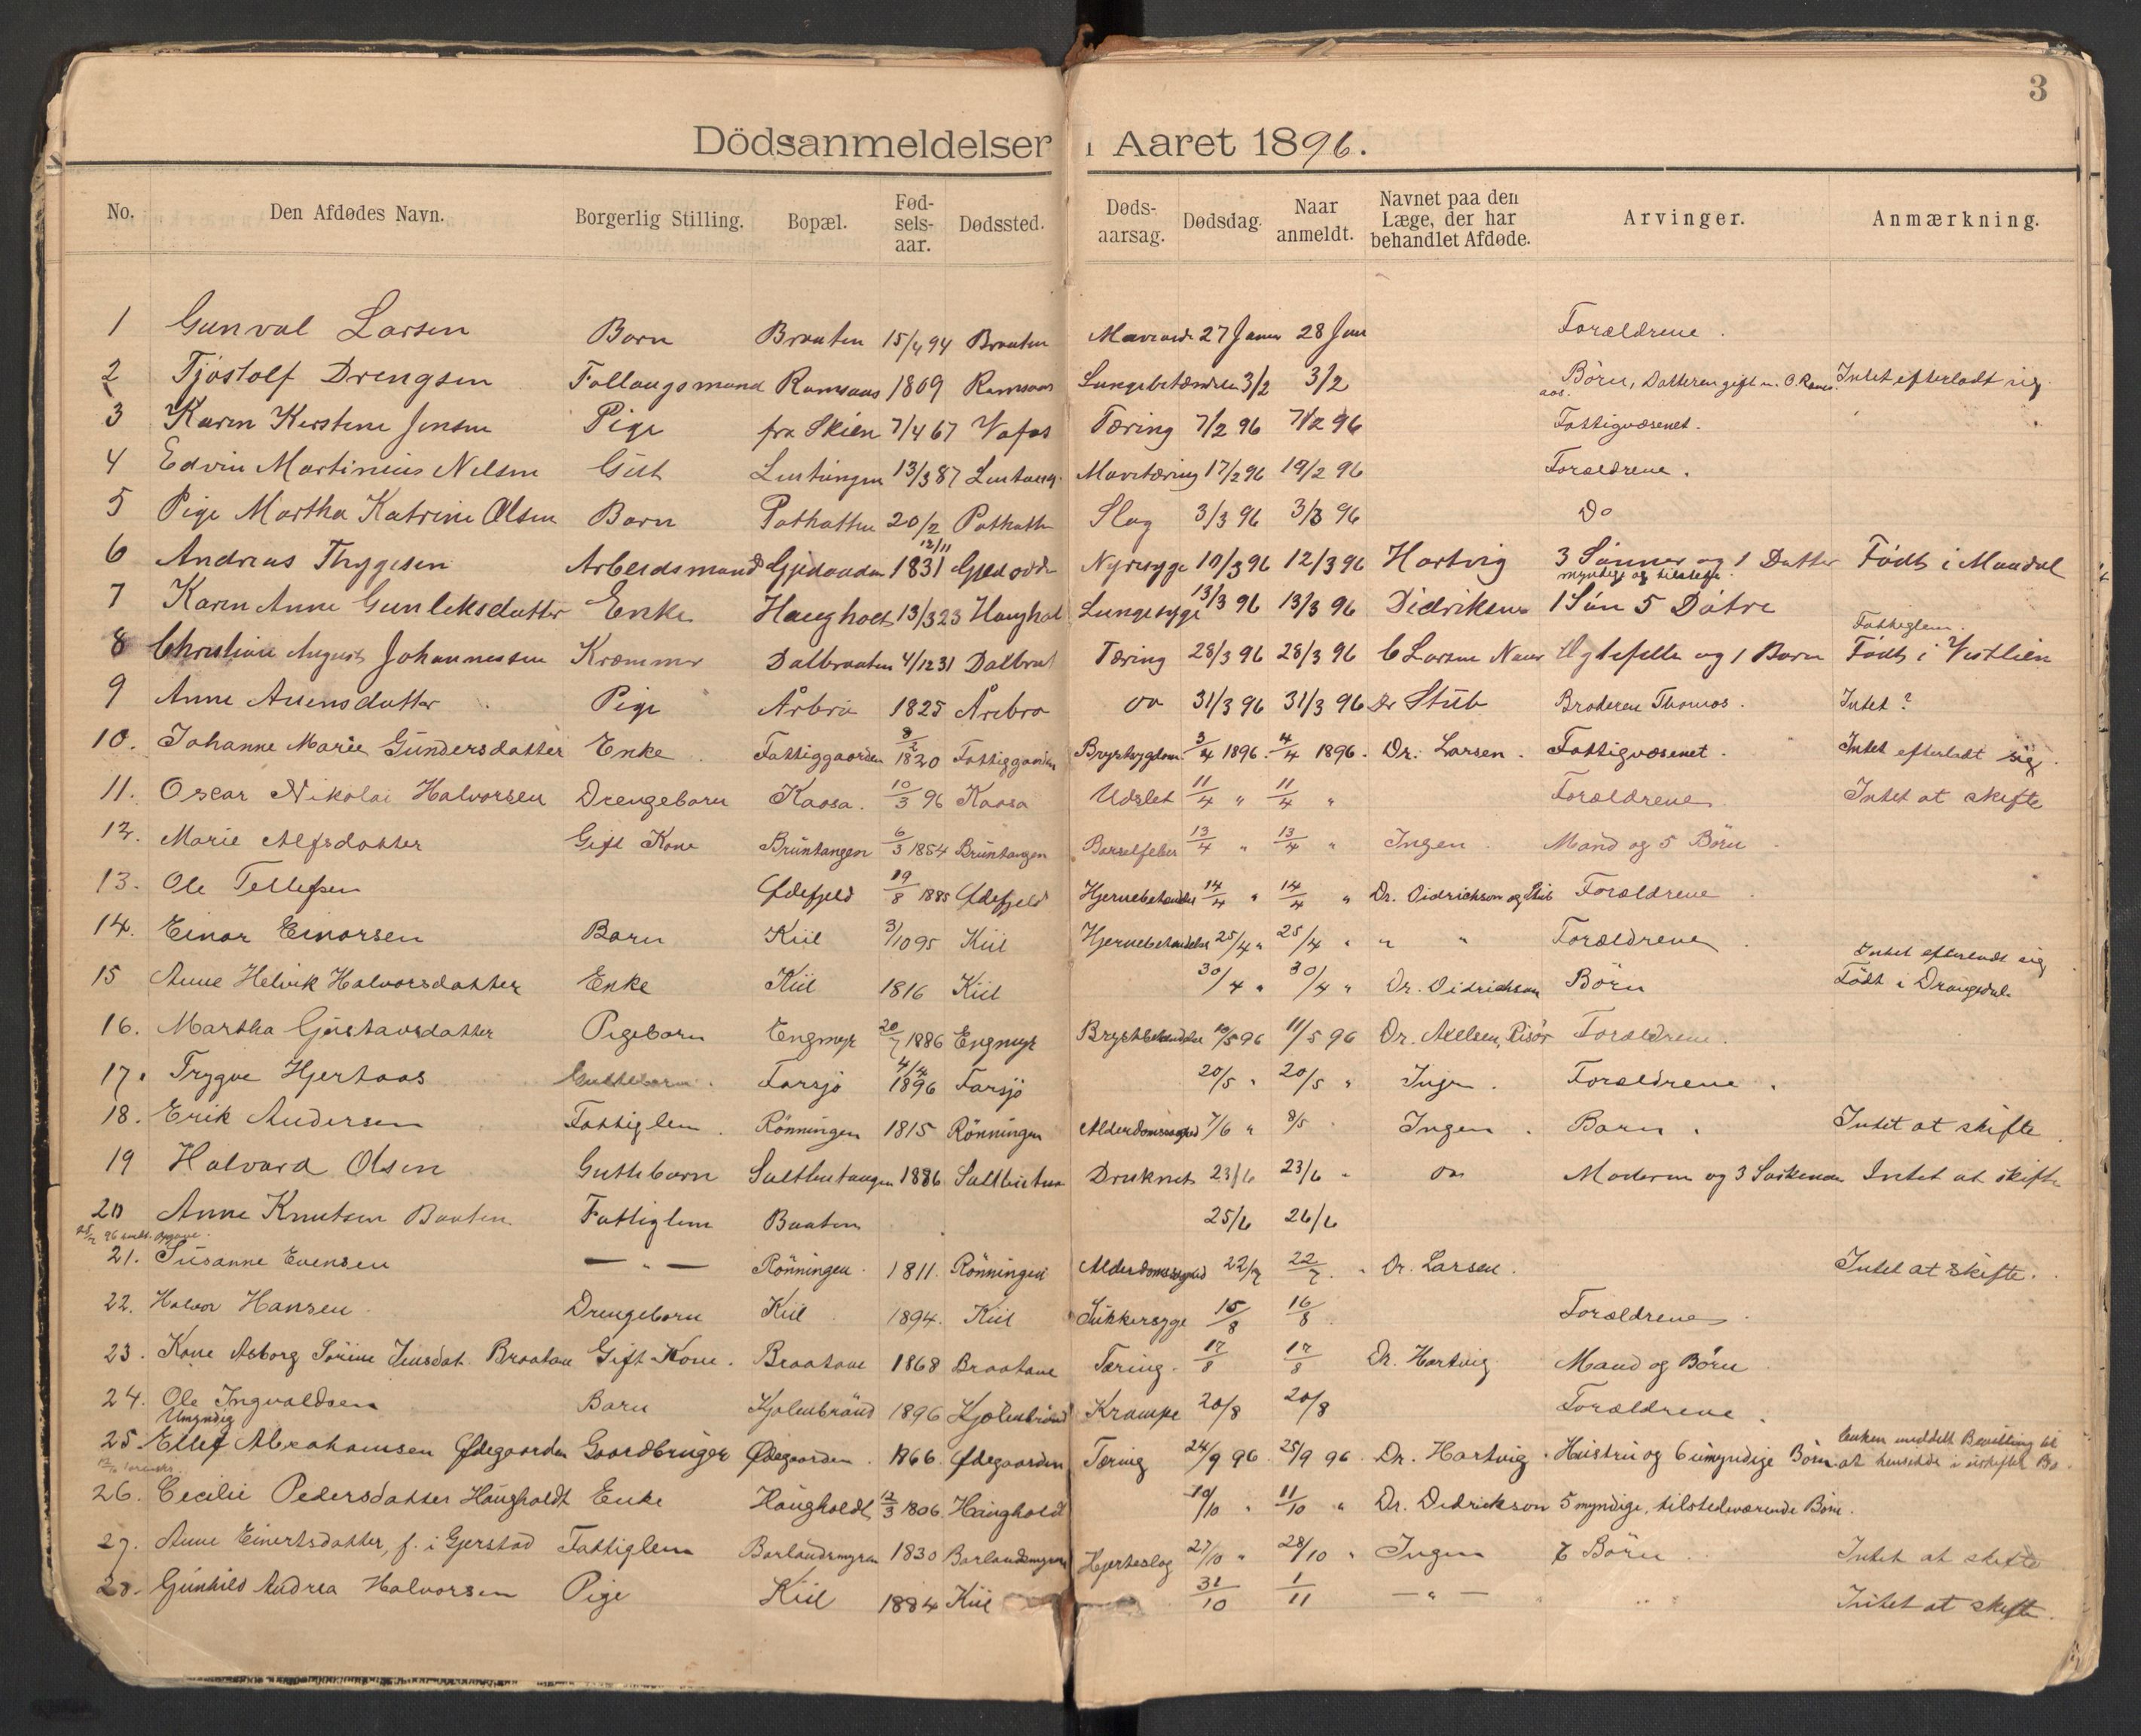 3
Dödsanmeldelser i Aaret 1896.
No. Den Afdødes Navn. Borgerlig Stilling. Bopæl. Fød-sels-aar. Dødssted. Døds-aarsag. Dødsdag. Naar anmeldt. Navnet paa den Læge, der har behandlet Afdøde. Arvinger. Anmærkning.
1 Gunval Larsen Barn Braaten 15/4 94 Braaten 27 Januar 28 Jan Forældrene.
2 Tjøstolf Drengsen Follaugsmand Ramsaas 1809 Ramsaas Lungebetændelse 3/2 3/2 Børn, Datteren gift m. O. Rams aas. Intet efterladt sig.
3 Karen Kirstine Jensen Pige fra Skien 7/4 67 Vafos Tæring 7/2 96 7/2 96 Fattigvæsenet.
4 Edvin Martinius Nelsen Gut 13/3 87 Mavetæring 17/2 96 19/2 96 Forældrene.
5 Pige Martha Katrine Olsen Barn 20/2 Slag 3/3 96 3/3 96 Do
6 Andreas Thygesen Arbeidsmand 12/11 1831 Nyresyge 10/3 96 12/3 96 Hartvig 3 Sønner og 1 Datter Født i Mandal
myndige og tilstede.
7 Karen Anne Gunleksdatter Enke Haugholt 13/3 23 Haugholt Lungesyge 13/3 96 13/3 96 Didriksen 1 Søn 5 Døtre
8 Christian August Johannessen Kræmmer Dalbraaten 4/12 31 Dalbraat Tæring 28/3 96 28/3 96 C Larsen Næs Egtefelle og 1 Barn Fattiglem. Født i Vestlien
9 Anne Avensdatter Pige Årbro 1825 Årebro do 31/3 96 31/3 96 Dr Stub Broderen Thomas. Intet?
10. Johanne Marie Gundersdatter Enke Fattiggaarden 1820 Fattiggaarden Brystsygdom. 3/4 1896. 4/4 1896. Dr. Larsen. Fattigvæsenet. Intet efterladt sig.
11. Oscar Nikolai Halvorsen Drengebarn Kaasa. 10/3 96 Kaasa Udslet 11/4 " 11/4 " Forældrene Intet at skifte
12. Marie Alfsdatter Gift Kone Bruntangen 6/3 1854 Bruntangen Barselfeber 13/4 " 13/4 " Ingen. Mand og 5 Børn.
13. Ole Tellefsen Ødefjeld 19/8 1885 Ødefjeld Hjernebetændelse 14/4 " 14/4 " Dr. Didrichson og Stub Forældrene.
14. Einar Einarsen Barn Kiil 3/10 95 Kiil Hjernebetændelse 25/4 " 25/4 " " " Forældrene.
15 Anne Helvik Halvorsdatter Enke Kiil 1816 Kiil 30/4 " 30/4 " Dr. Didrichson Børn Intet efterladt sig Født i Drangedal.
16. Martha Gustavsdatter Pigebarn Engmyr 20/7 1886 Engmyr Brystbetændelse 10/5 96 11/5 96 Dr. Axelsen, Risør Forældrene.
17. Trygve Hjertaas Guttebarn. Farsjø 4/4 1896 Farsjø 20/5 " 20/5 " Ingen. Forældrene.
18. Erik Andersen Fattiglem. Rønningen 1815 Rønningen Alderdomssvaghed 7/6 " 8/5 Ingen. Barn. Intet at skifte.
19 Halvard Olsen Guttebarn 1886 Druknet 23/6 23/6 " do Moderen og 3 Søskende Intet at skifte
20 Anne Knutsen Baaten Fattiglem Baaten 25/6 26/6
21. Susanne Evensen — " — Rønningen. 1811. Rønningen Alderdomssvaghed 22/7 22/7 " Dr. Larsen. Intet at skifte.
22. Halvor Hansen Drengebarn Kiil 1894. Kiil Sukkersyge 15/8 16/8 Forældrene.
23. Kone Asborg Sørine Jensdat. Braatane Gift Kone. Braatane 1868 Braatane Tæring. 17/8 17/8 Dr. Hartvig. Mand og Børn
24. Ole Ingvaldsen Barn Kjølenbrånd 1896 Kjølenbrånd Krampe 20/8 20/8 Forældrene.
Umyndig
25. Ellef Abrahamsen Ødegaarden Gaardbruger Ødegaarden. 1866. Ødegaarden Tæring 24/9 96. 25/9 96. Dr. Hartvig. Hustru og 6 umyndige Børn. Enken meddelt Bevilling til at hensidde i uskiftet Bo.
26. Cecilie Pedersdatter Haugholdt Enke Haugholdt 12/3 1806. Haugholdt 10/10 " 11/10 " Dr. Didrickson 5 myndige, tilstedeværende Børn.
27. Anne Einertsdatter, f. i Gjerstad Fattiglem Barlandsmyren 1830 Barlandsmyren Hjerteslag 27/10 " 28/10 " Ingen Børn Intet at skifte
28. Gunhild Andrea Halvorsen Pige Kiil 1884 Kiil 31/10 1/11 — " — Intet at skifte.